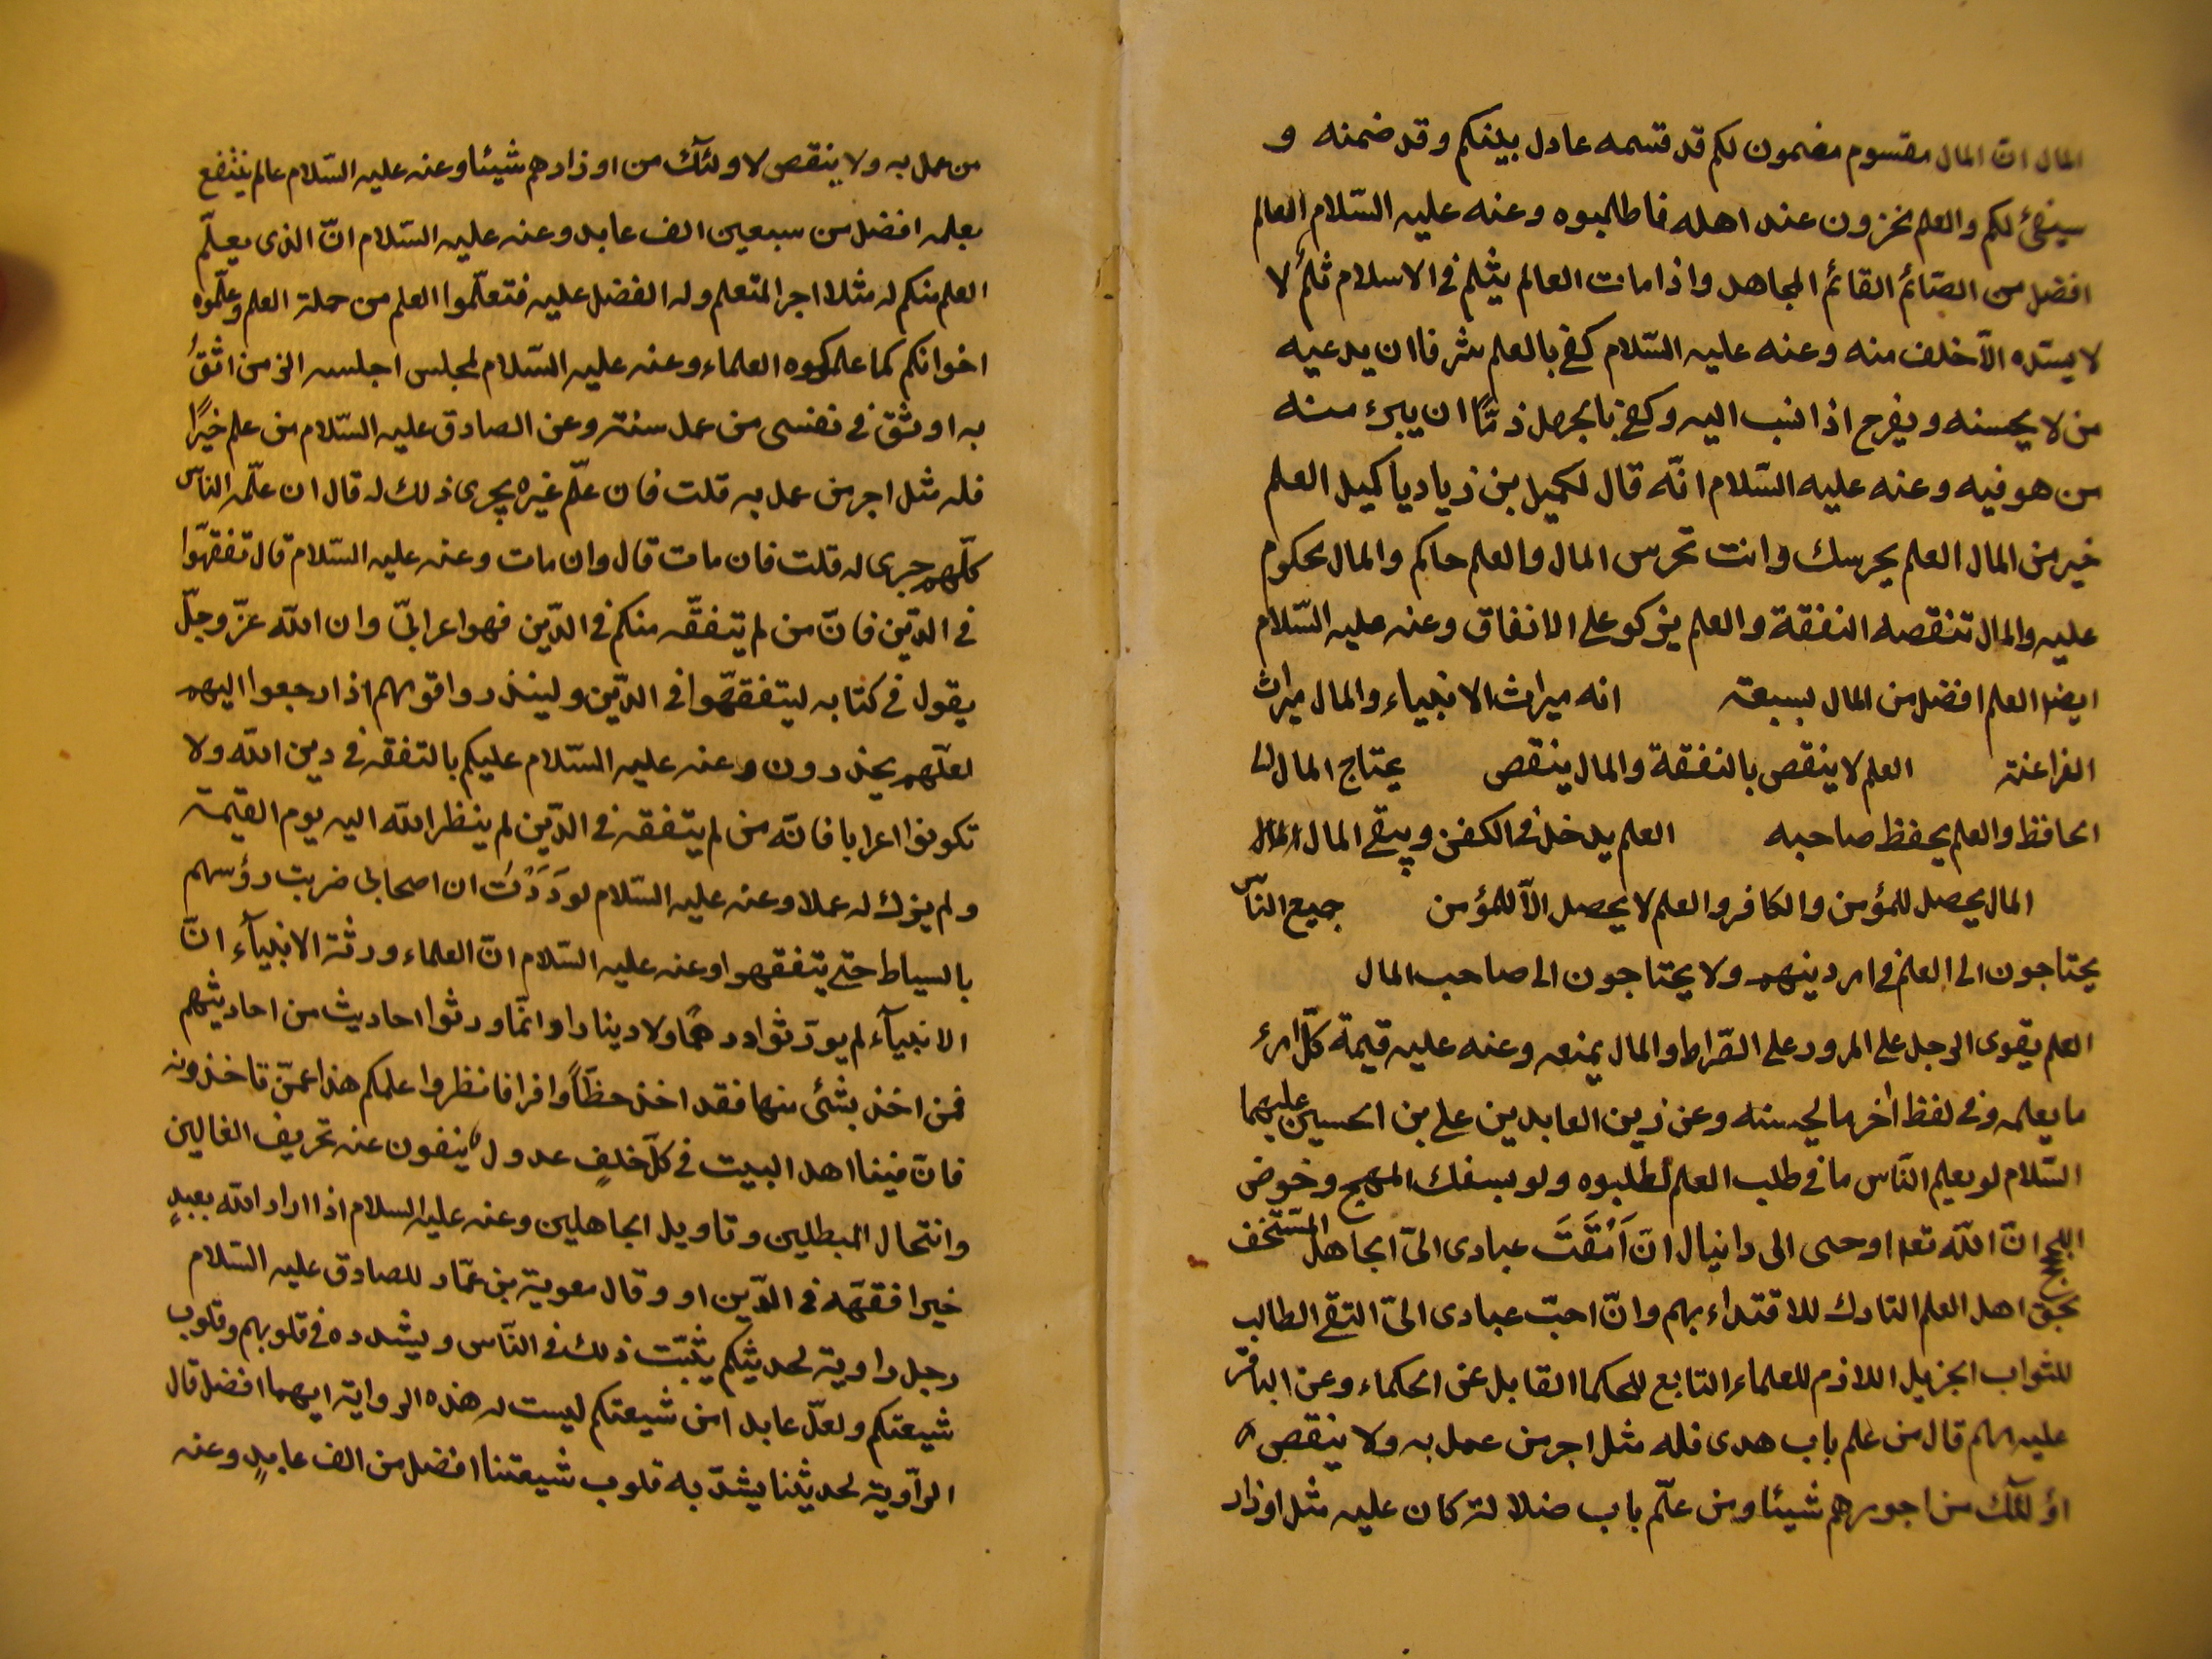 المال ان المال مقسوم مضمون لكم قد قسمه عادل بينكم وقد ضمنه و
سيفئ لكم والعلم مخزون عند اهله فاطلبوه وعنه عليه السّلام العالم
افضل من الصّائم القائم المجاهد واذا مات العالم يثلم فى الاسلام ثلمُ لا
لا يسدّه الّا خلف منه وعنه عليه السّلام كفى بالعلم شرفا ان يدعيه
من لا يحسنه ويفرح اذا نسب اليه وكفى بالجهل ذمًّا ان يبرء منه
من هو فيه وعنه عليه السّلام انّه قال لكميل بن زياد يا كميل العلم
خير من المال العلم يحرسك وانت تحرس المال والعلم حاكم والمال محكوم
عليه والمال تنقصه النفقة والعلم يزكو على الانفاق وعنه عليه السّلام
ايضا العلم افضل من المال بسبعة انه ميراث الانبياء والمال ميراث
الفراعنة العلم لا ينقص بالنفقة والمال ينقص يحتاج المال الى
الحافظ والعلم يحفظ صاحبه العلم يدخل فى الكفن ويبقى المال
المال يحصل للمؤمن والكافر والعلم لا يحصل الّا للمؤمن جميع النّاس
يحتاجون الى العلم فى امر دينهم ولا يحتاجون الى صاحب المال
العلم يقوى الرجل على المرور على الصّراط والمال يمنعه وعنه عليه قيمة كلّ امرئ
ما يعلمه وفى لفظ اخر ما يحسنه وعن زين العابدين على بن الحسين عليهما
السّلام لو يعلم النّاس ما فى طلب العلم لطلبوه ولو بسفك المهج وخوض
اللجج انّ اللّه تعه اوحى الى دانيال انّ اَمْقَتَ عبادى الىّ الجاهل المستخف
بحقّ اهل العلم التارك للاقتداء بهم وانّ احبّ عبادى الىّ التقى الطالب
للثواب الجزيل اللازم للعلماء التابع للحكما القابل عن الحكماء وعن الباقر
عليه لهم قال من علم باب هدى فله مثل اجر من عمل به ولا ينقص
اؤلئك من اجورهم شيئا ومن علّم باب ضلالة كان عليه مثل اوزار
من عمل به ولا ينقص لاولئك من اوزارهم شيئا وعنه عليه السّلام عالم ينتفع
بعلمه افضل من سبعين الف عابد وعنه عليه السّلام انّ الذى يعلّم
العلم منكم له مثل اجر المتعلم وله الفضل عليه فتعلّموا العلم من حملة العلم وعلّموه
اخوانكم كما علمكموه العلماء وعنه عليه السّلام لمجلس اجلسه الى من اثقُ
به اوثق فى نفسى من عمل سنة وعن الصادق عليه السّلام من علم خيرًا
فله مثل اجر من عمل به قلت فان علّم غيره يجرى ذلك له قال ان علّمه الناس
كلّهم جرى له قلت فان مات قال وان مات وعنه عليه السّلام قال تفقهّوا
فى الدّين فانّ من لم يتفقّه منكم فى الدّين فهو اعرابىّ وان اللّه عزّ وجلّ
يقول فى كتابه ليتفقهّوا فى الدّين ولينذروا قومهم اذا رجعوا اليهم
لعلّهم يحذرون وعنه عليه السّلام عليكم بالتفقه فى دين اللّه ولا
تكونوا اعرابا فانّه من لم يتفقه فى الدّين لم ينظر اللّه اليه يوم القيمة
ولم يزك له عملا وعنه عليه السّلام لوَدَدْتُ ان اصحابى ضربت رؤسهم
بالسياط حتى يتفقهوا وعنه عليه السّلام انّ العلماء ورثة الانبيآء انّ
الانبيآء لم يورّثوا درهمًا ولا دينارا وانمّا ورثوا احاديث من احاديثهم
فمن اخذ بشئ منها فقد اخذ حظّاً وافرا فانظروا علمكم هذا عمّن تاخذونه
فانّ فينا اهل البيت فى كلّ خلفٍ عدولا ينفون عنه تحريف الغالين
وانتحال المبطلين وتاويل الجاهلين وعنه عليه السلام اذا اراد اللّه بعبدٍ
خيرا فقهّه فى الدّين او وقال معوية بن عمّار للصادق عليه السّلام
رجل راوية لحديثكم يثبّت ذلك فى النّاس ويشدده فى قلوبهم وقلوب
شيعتكم ولعلّ عابد امن شيعتكم ليست له هذه الرواية ايهما افضل قال
الرّاوية لحديثنا يشدّ به قلوب شيعتنا افضل من الف عابدٍ وعنه